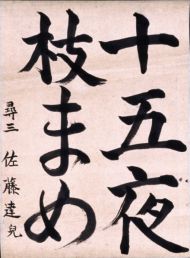 十五夜
枝まめ
尋三 佐藤達兒